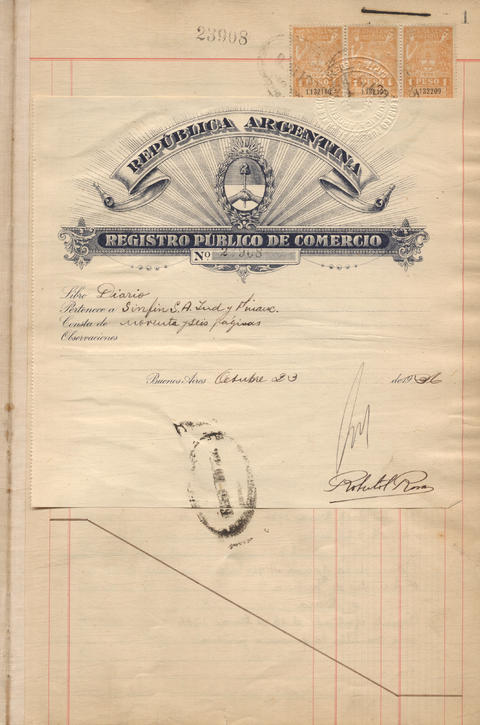 1
23908
1 PESO 1
1 PESO 1
1 PESO 1
1132209
REPÚBLICA ARGENTINA
REGISTRO PÚBLICO DE COMERCIO
Nº 23908
Libro Diario
Pertenece a Sinfin S.A. Ind y Financ.
Consta de noventa y seis páginas
Observaciones
Buenos Aires Octubre 23 de 1936